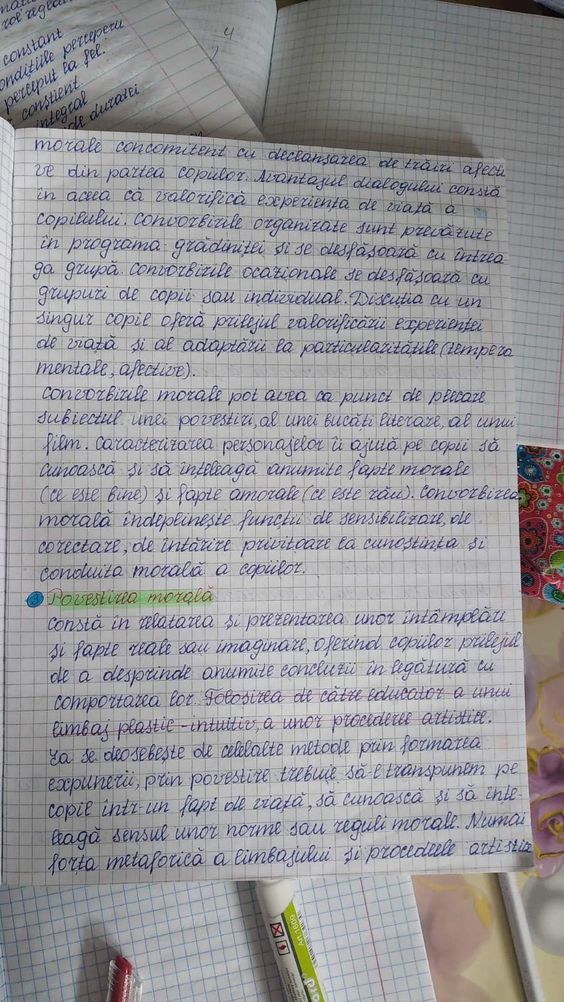 constant
condițiile perceperii
perceput la fel.
constient
integral
de duratei
4
morale concomitent cu declanșarea de trăiri afecti
ve din partea copiilor. Avantajul dialogului constă
în aceea că valorifică experiența de viață a
copilului. Convorbirile organizate sunt prevăzute
în programa grădiniței și se desfășoară cu întrea
ga grupă. Convorbirile ocazionale se desfășoară cu
grupuri de copii sau individual. Discuția cu un
singur copil oferă prilejul valorificării experienței
de viață și al adaptării la particularitățile (tempera
mentale, afective).
Convorbirile morale pot avea ca punct de plecare
subiectul unei povestiri, al unei bucăți literare, al unui
film. Caracterizarea personajelor îi ajută pe copii să
cunoască și să înțeleagă anumite fapte morale
(ce este bine) și fapte amorale (ce este rău). Convorbirea
morală îndeplinește funcții de sensibilizare, de
corectare, de întărire privitoare la cunoștința și
conduita morală a copiilor.
3 Povestirea morală
Constă în relatarea și prezentarea unor întâmplări
și fapte reale sau imaginare, oferind copiilor prilejul
de a desprinde anumite concluzii în legătură cu
comportarea lor. Folosirea de către educator a unui
limbaj plastic-intuitiv, a unor procedee artistice.
Ea se deosebește de celelalte metode prin formarea
expunerii, prin povestire trebuie să-l transpunem pe
copil într-un fapt de viață, să cunoască și să înțe-
leagă sensul unor norme sau reguli morale. Numai
forța metaforică a limbajului și procedeele artistic